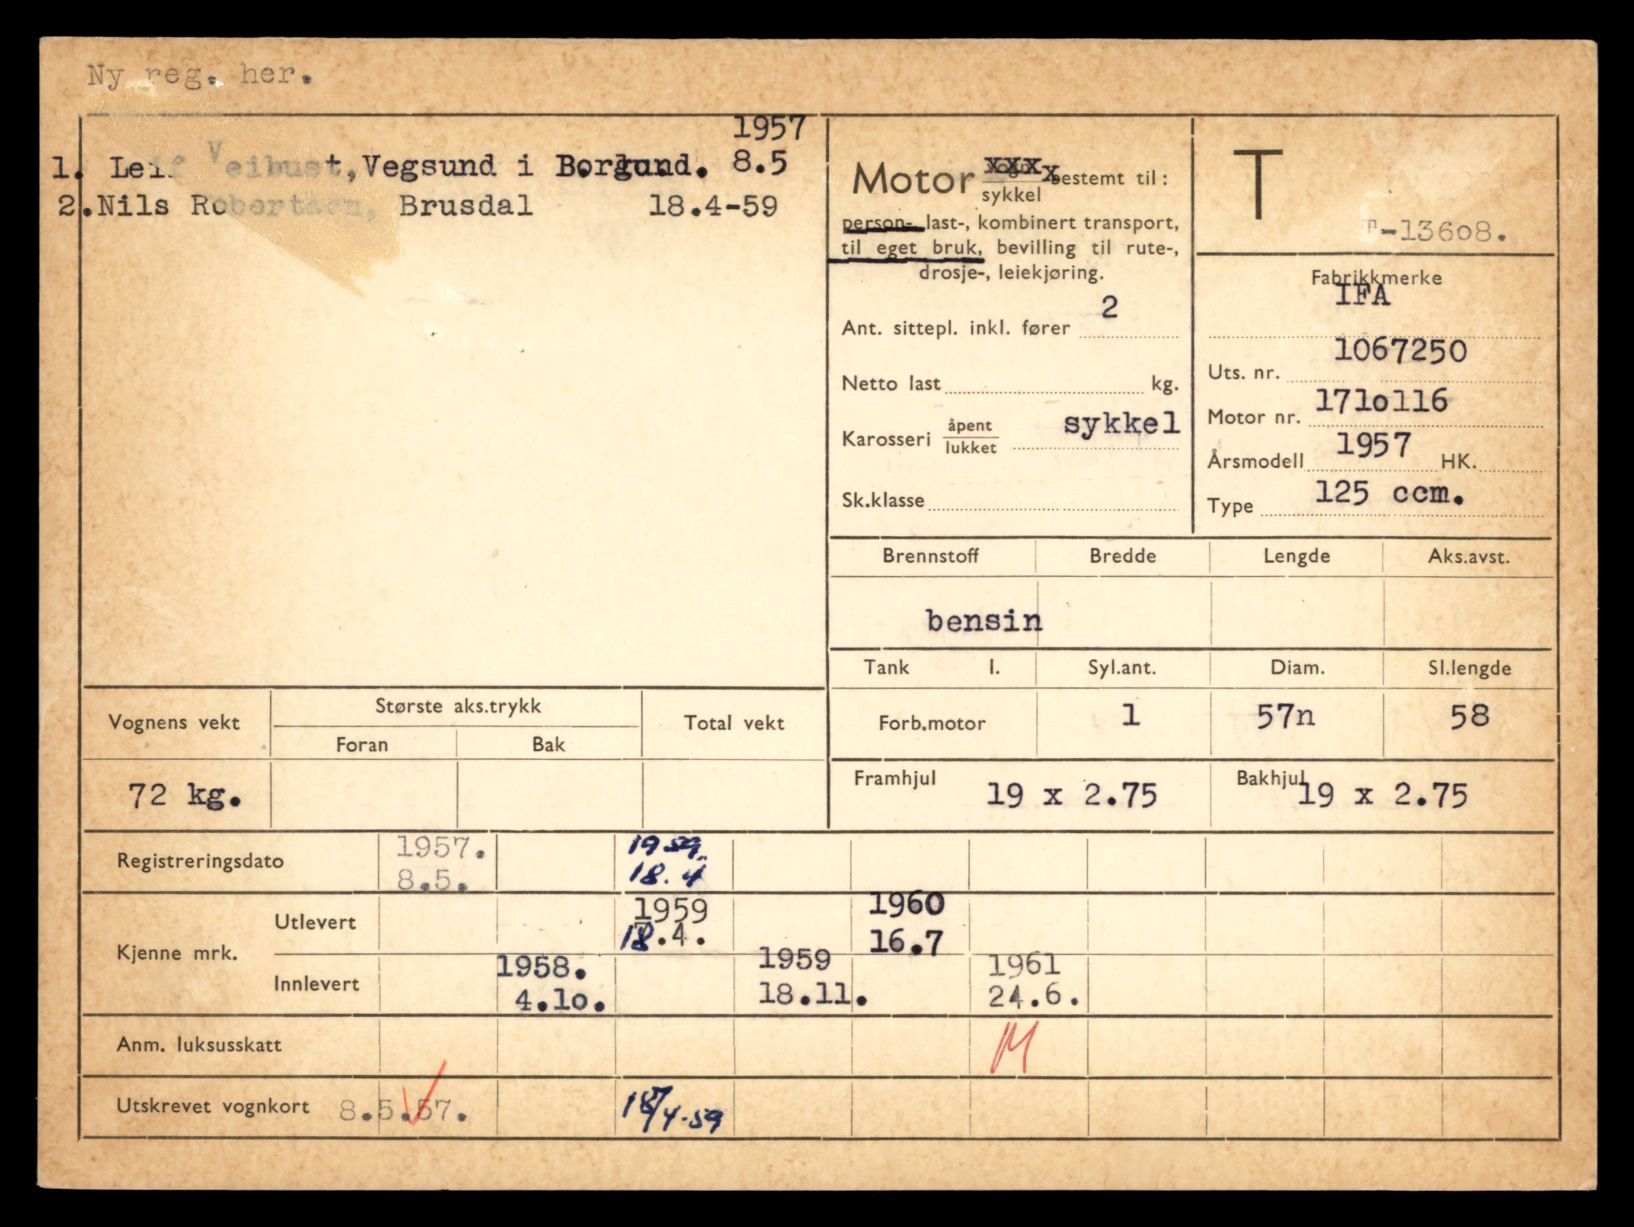 Ny reg. her.
1957
1. Leif Veibust, Vegsund i Borgund. 8.5
2. Nils Robertsen, Brusdal 18.4-59
Motor vogn xxxx bestemt til:
sykkel
person-, last-, kombinert transport,
til eget bruk, bevilling til rute-,
drosje-, leiekjøring.
Ant. sittepl. inkl. fører 2
Netto last kg.
Karosseri åpent sykkel
lukket
Sk.klasse
T
T-13608.
Fabrikkmerke
IFA
Uts. nr. 1067250
Motor nr. 1710116
Årsmodell 1957 HK.
Type 125 ccm.
Brennstoff Bredde Lengde Aks.avst.
bensin
Tank l. Syl.ant. Diam. Sl.lengde
Forb.motor 1 57n 58
Framhjul 19 x 2.75 Bakhjul 19 x 2.75
Vognens vekt Største aks.trykk Total vekt
Foran Bak
72 kg.
Registreringsdato 1957. 1959.
8.5. 18.4
Kjenne mrk.
Utlevert 1959 1960
18.4. 16.7
Innlevert 1958. 1959 1961
4.10. 18.11. 24.6.
Anm. luksusskatt M
Utskrevet vognkort 8.5.57. 18/4-59